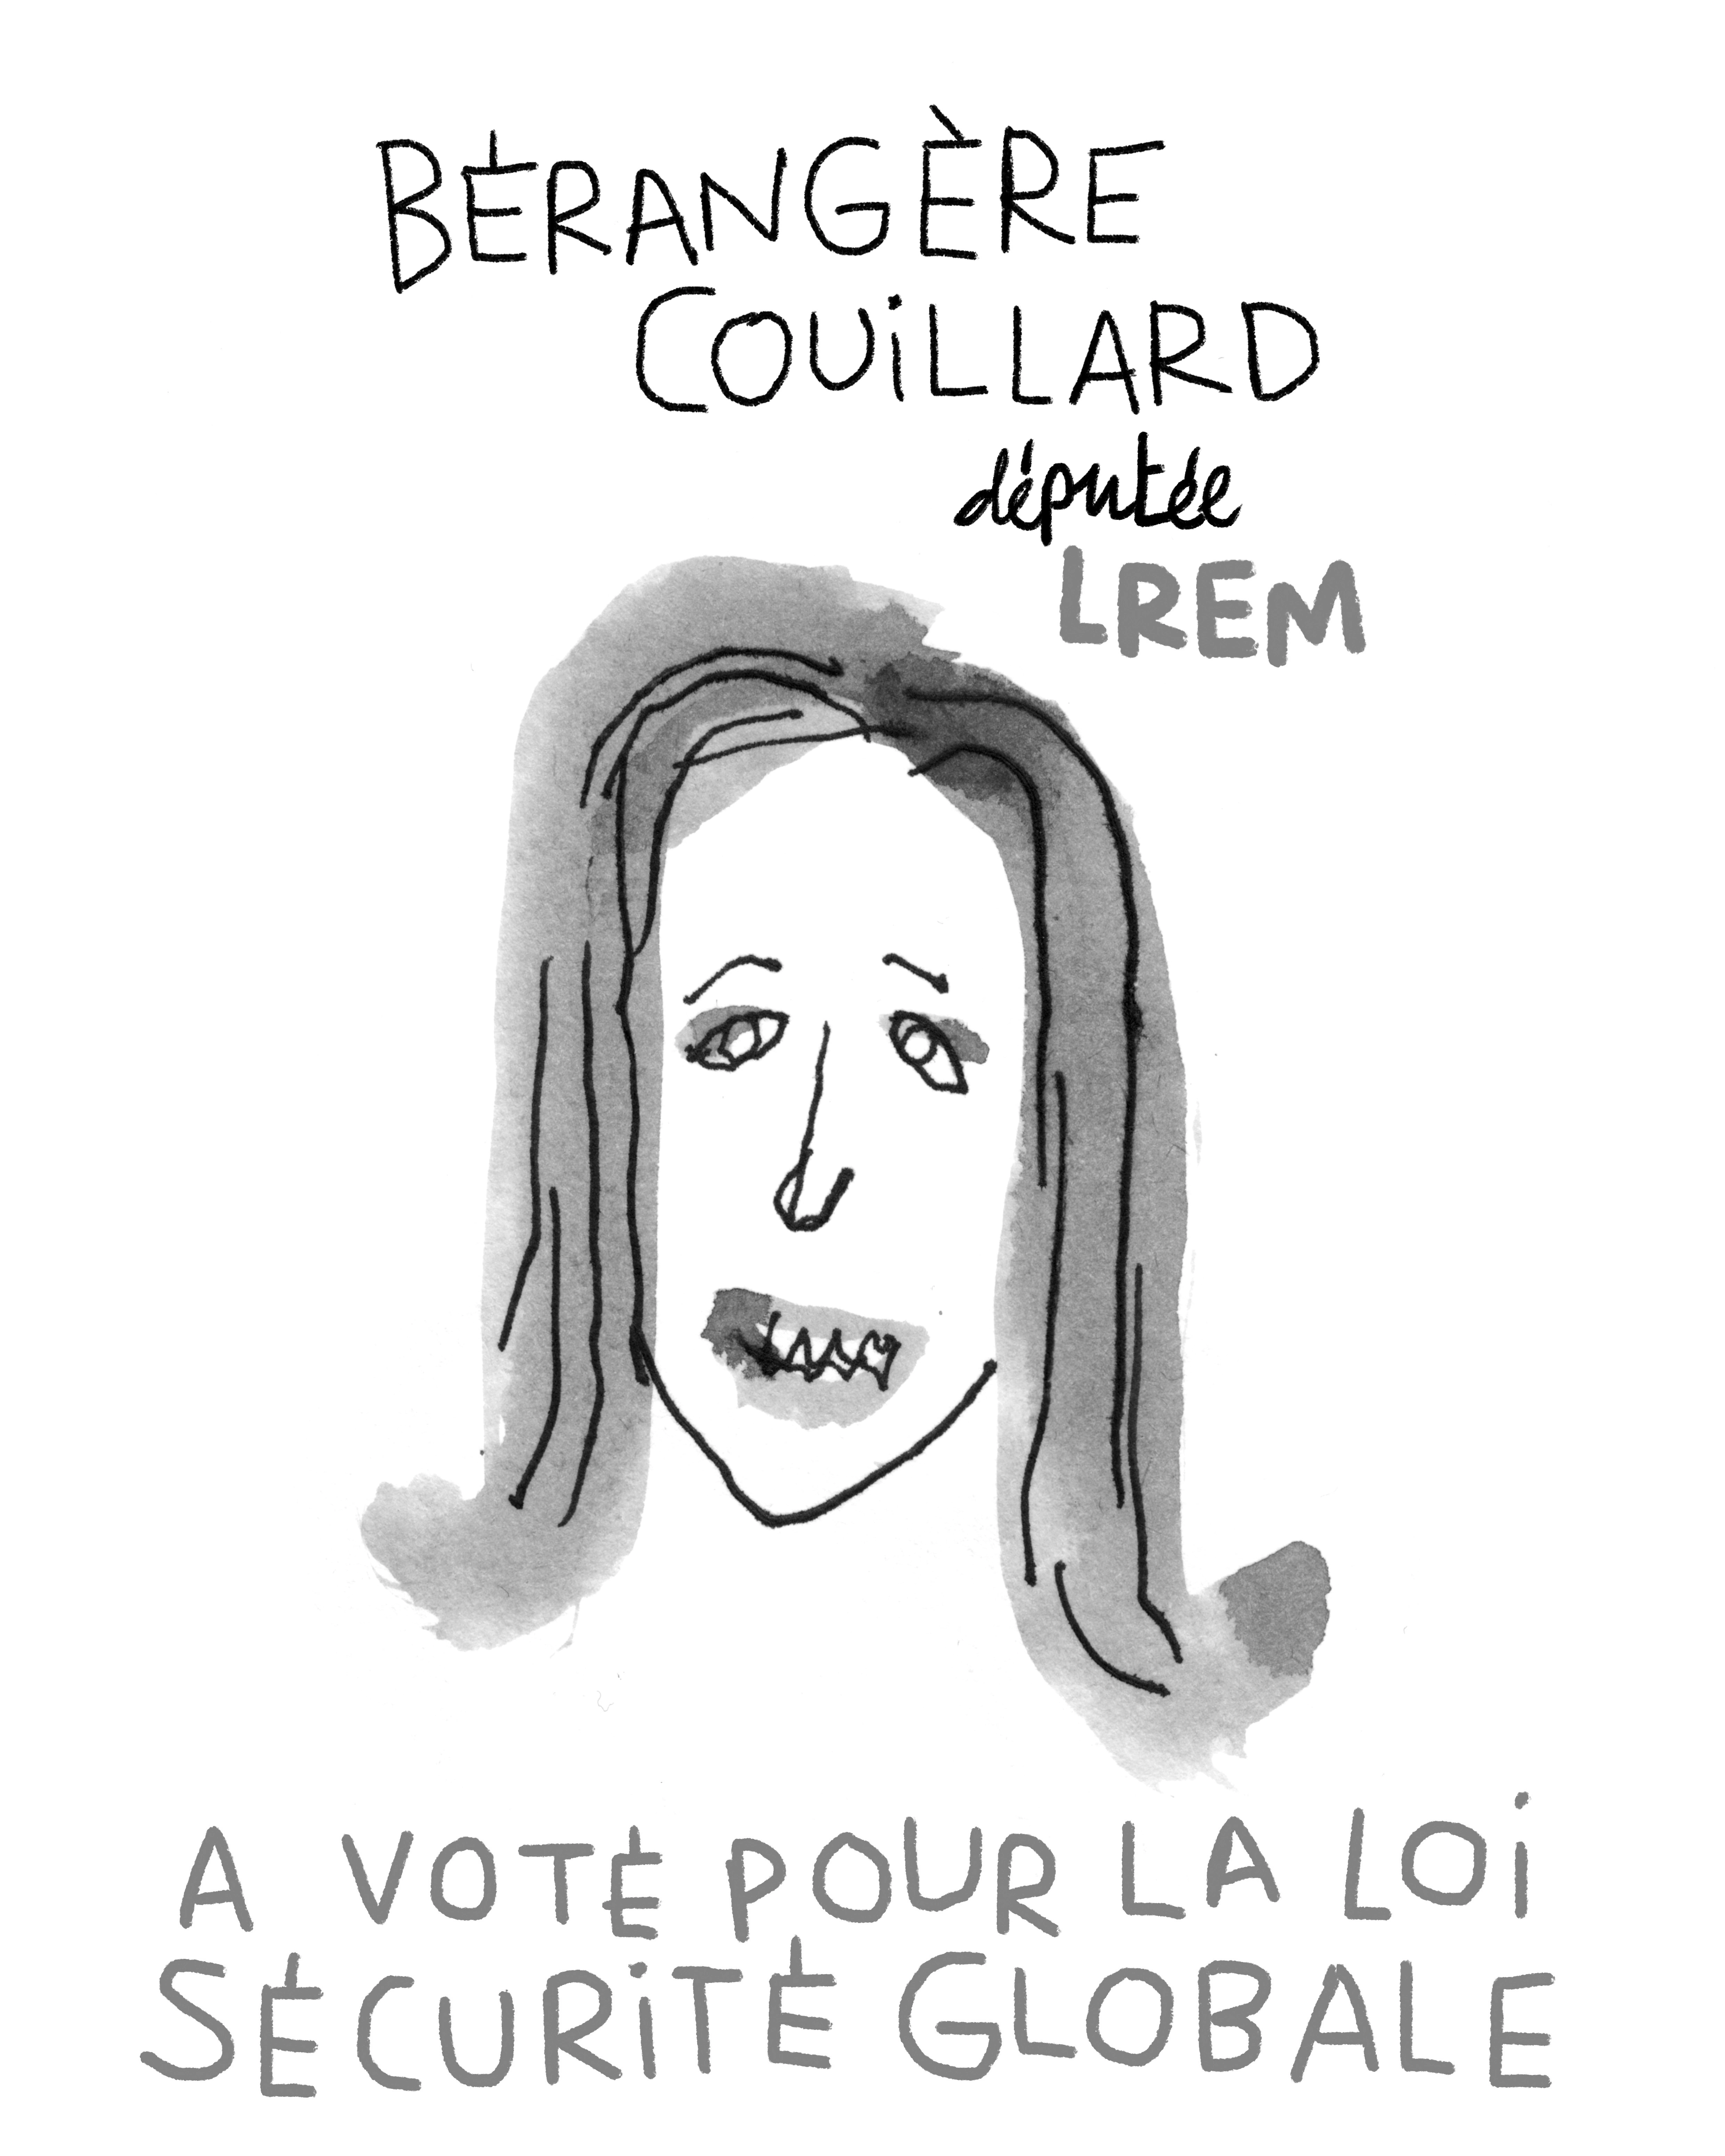 BÉRANGÈRE
COUiLLARD
députée
LREM
A VOTÉ POUR LA LOi
SÉCURiTÉ GLOBALE